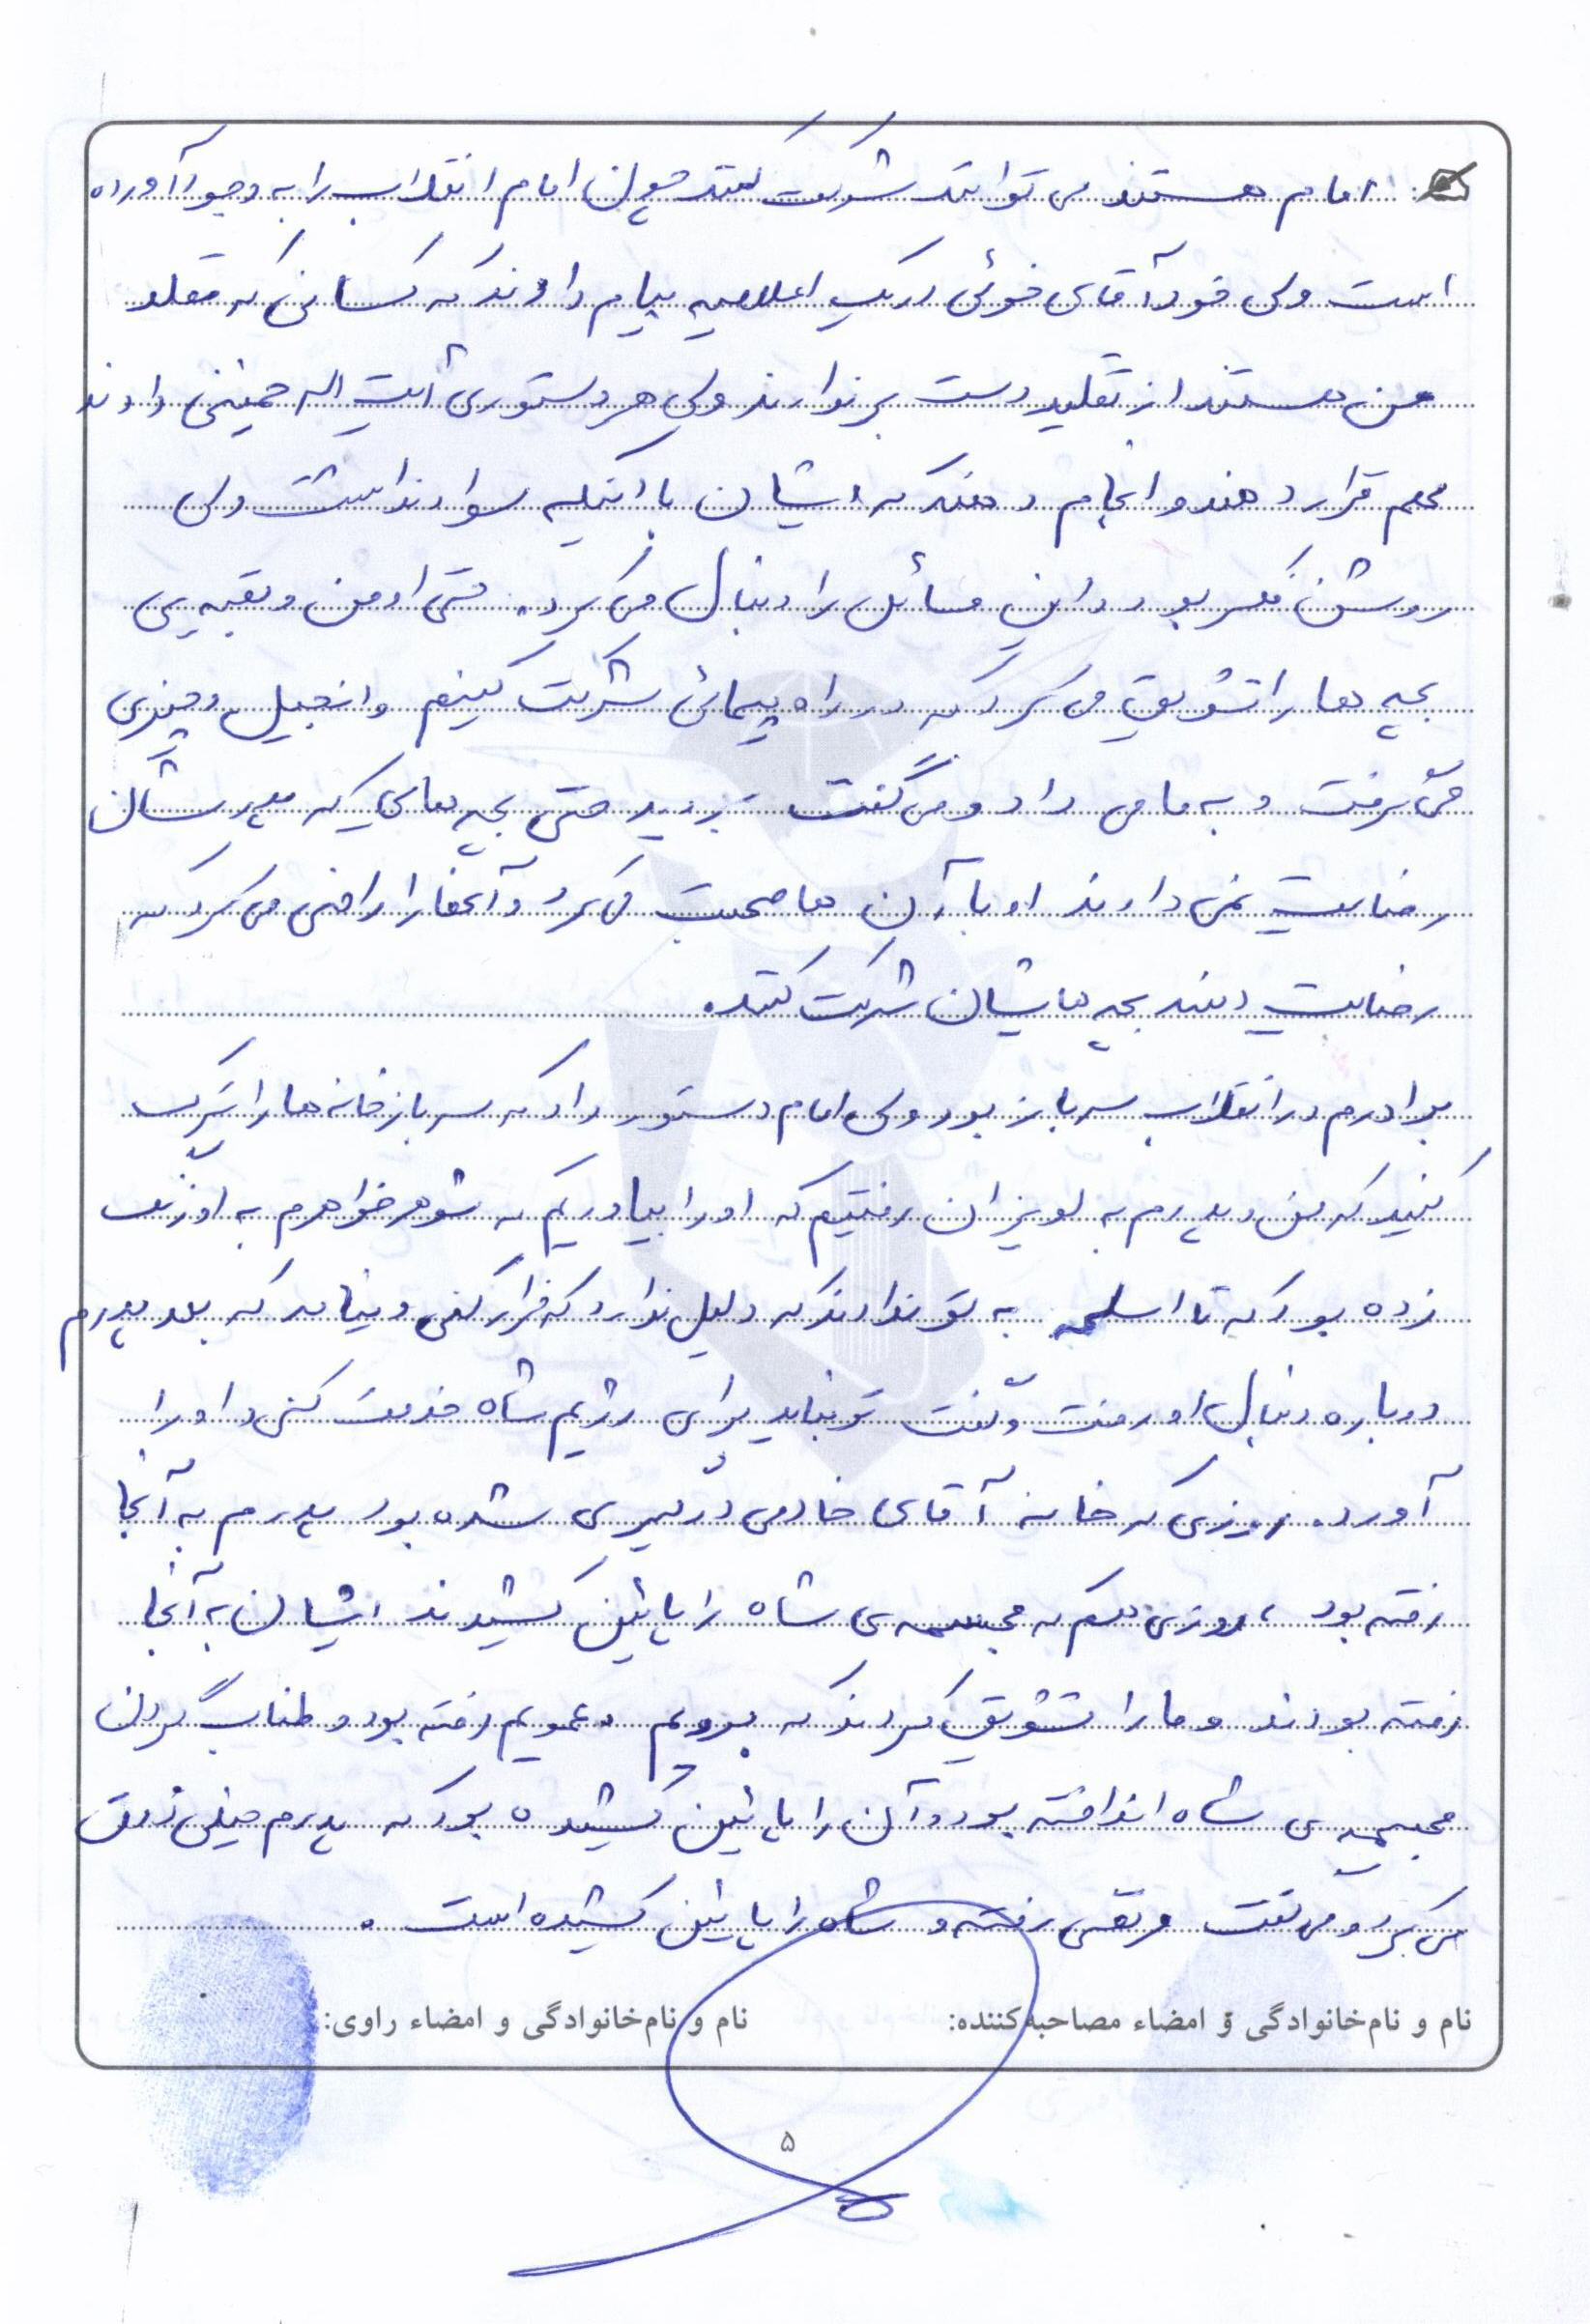 امام هستند می توانند شرکت کنند چون امام انقلاب را به وجود آورده
است ولی خود آقای خوئی در یک اعلامیه پیام دادند که کسانی که مقلد
من هستند از تقلید دست برندارند ولی هر دستوری آیت اله خمینی دادند
محکم قرار دهند و انجام دهند که ایشان با اینکه سواد نداشت ولی
روشن فکر بود و این مسائل را دنبال می کرد. حتی او من و بقیه ی
بچه ها را تشویق می کرد که در راه پیمائی شرکت کنیم و آنجیل و چیزی
می گرفت و به ما می داد و می گفت بروید حتی بچه هایی که پدرشان
رضایت نمی دادند او با آن ها صحبت می کرد و آنها را راضی می کرد که
رضایت دهند بچه هایشان شرکت کنند.
برادرم در انقلاب سرباز بود ولی امام دستور داد که سربازخانه ها را ترک
کنید که من و پدرم به لویزان رفتیم که او را بیاوریم که شوهر خواهرم به او زنگ
زده بود که تا اسلحه به تو ندادند که دلیل ندارد که فرار کنی و نیامد که بعد پدرم
دوباره دنبال او رفت و گفت تو نباید برای رژیم شاه خدمت کنی و او را
آورد. روزی که خانه آقای خادمی درگیری شده بود پدرم به آنجا
رفته بود، روزی هم که مجسمه ی شاه را پائین کشیدند ایشان به آنجا
رفته بودند و ما را تشویق کردند که برویم و عمویم رفته بود و طناب گردن
مجسمه ی شاه انداخته بود و آن را پائین کشیده بود که پدرم خیلی ذوق
می کرد و می گفت تقی رفته و شاه را پائین کشیده است.
نام و نام‌خانوادگی و امضاء مصاحبه‌کننده:
نام و نام‌خانوادگی و امضاء راوی:
۵